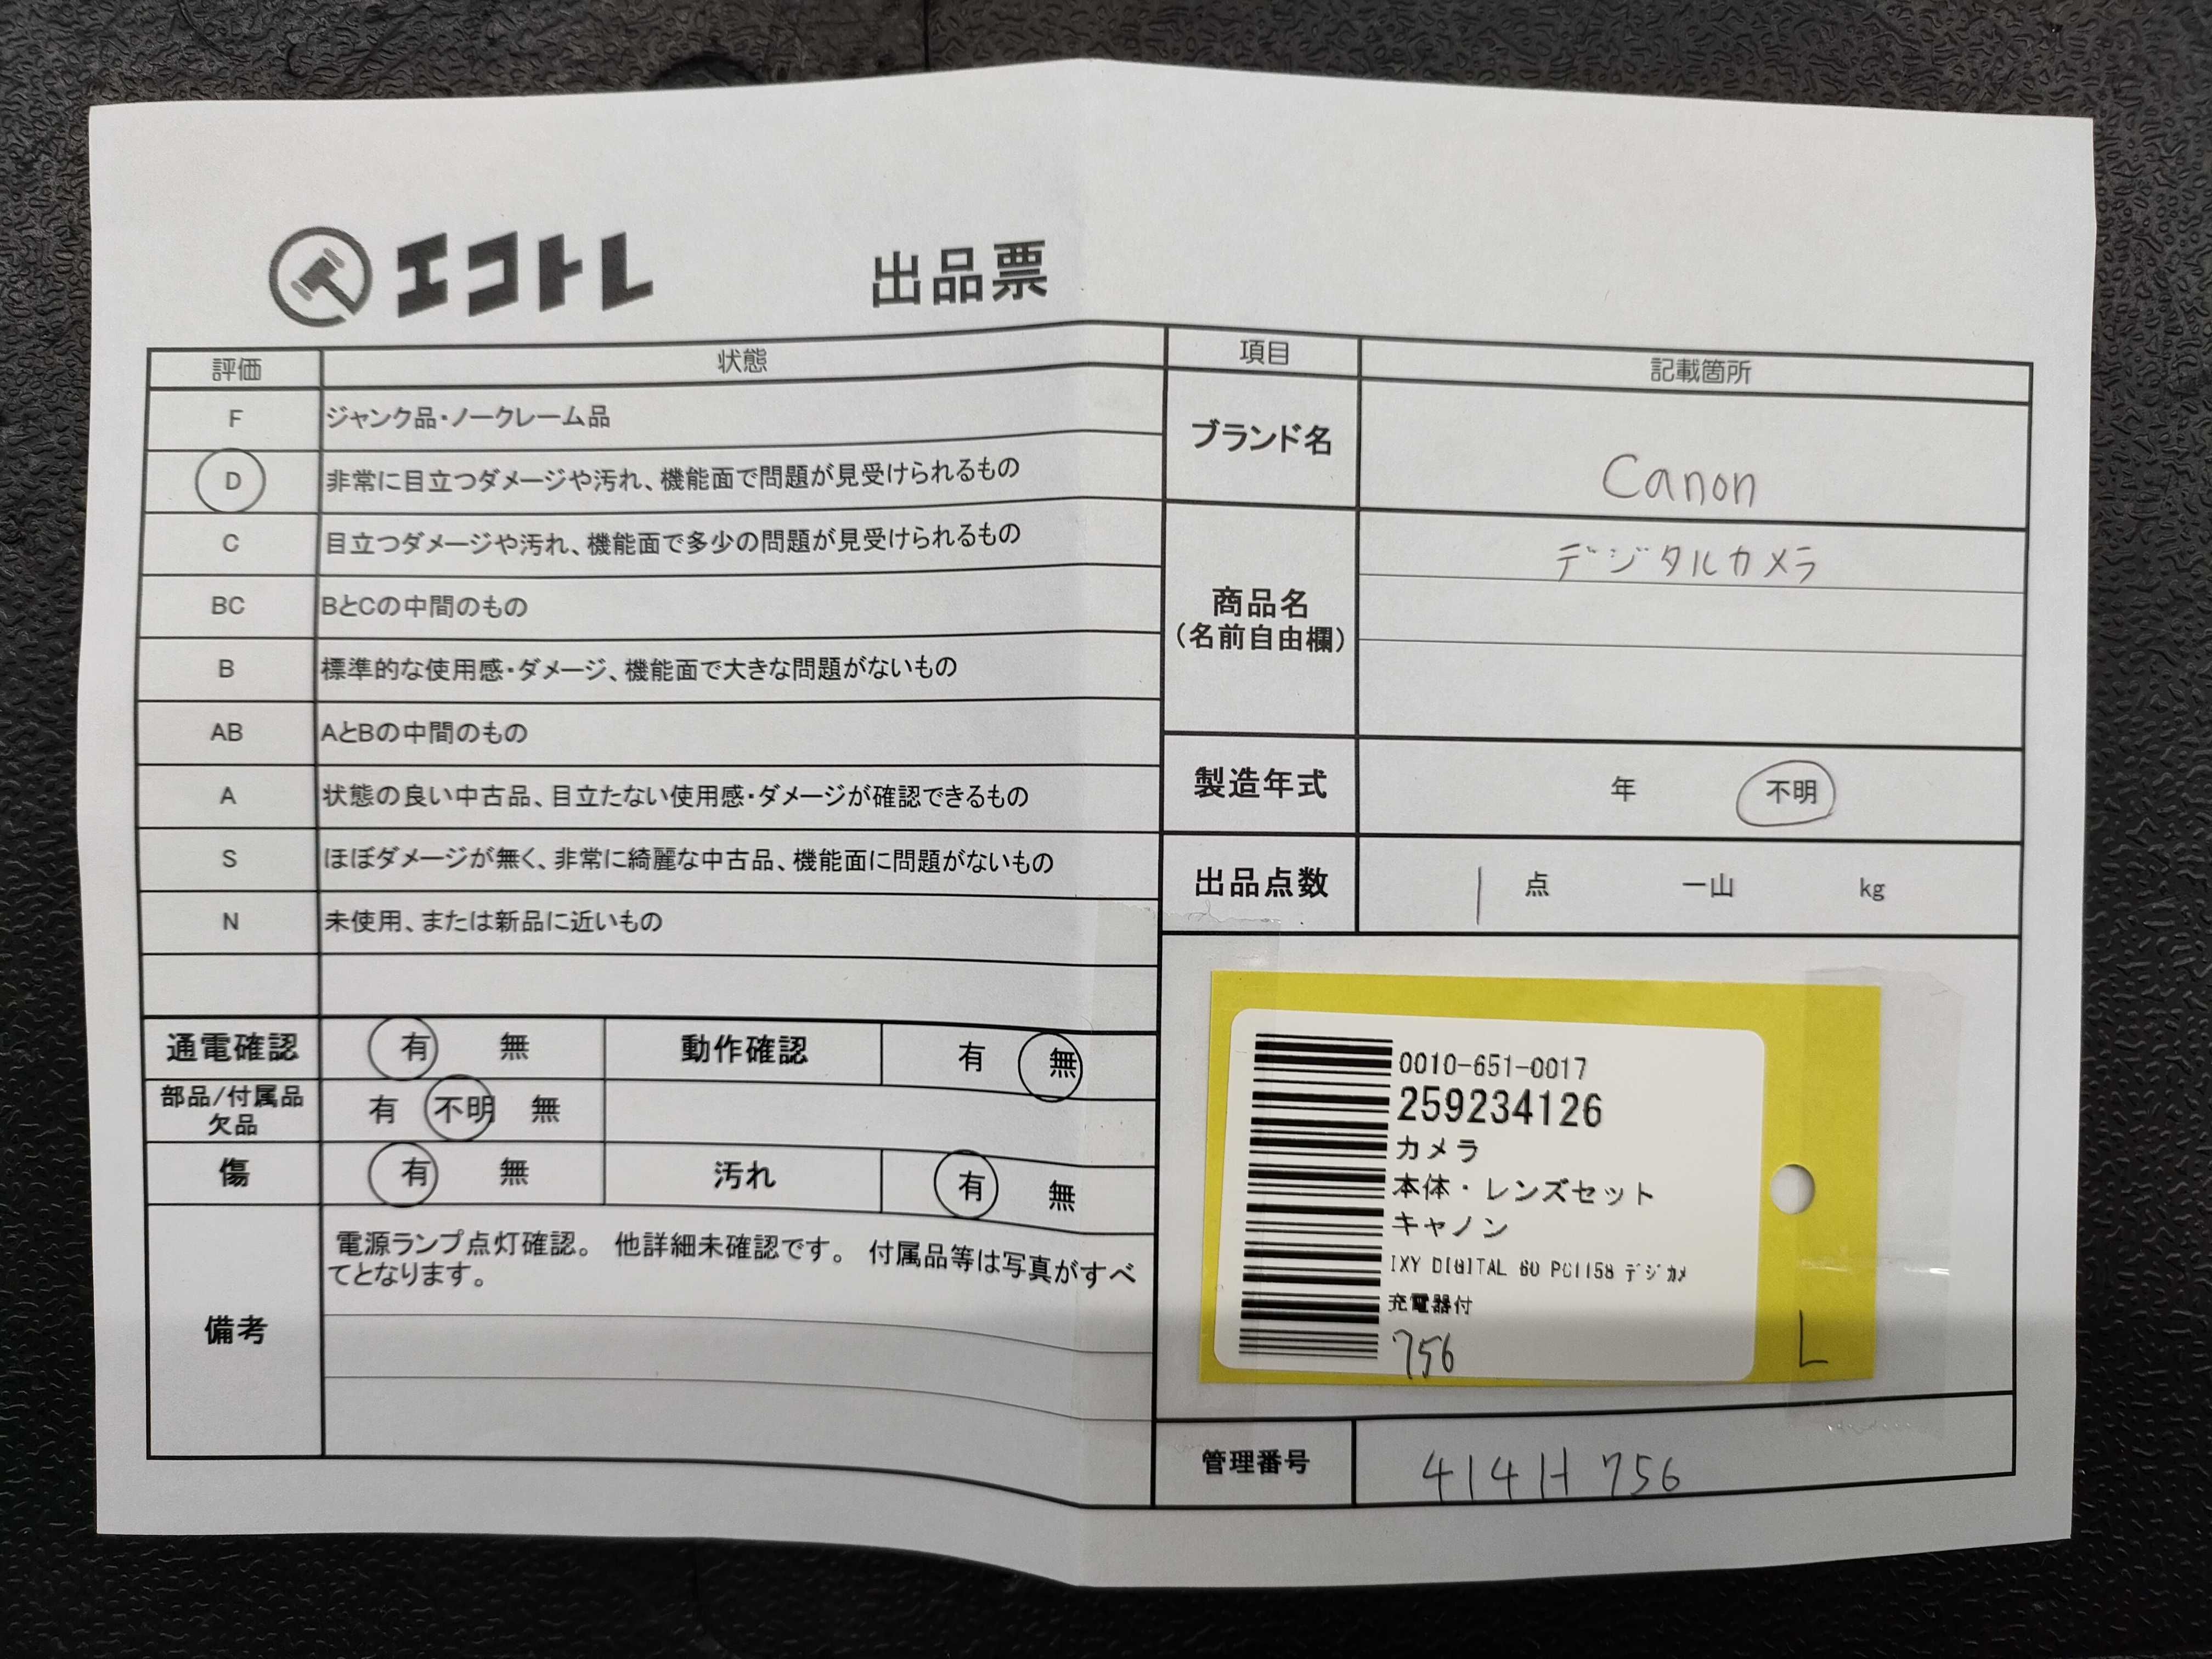 エコトレ 出品票
評価 状態
F ジャンク品・ノークレーム品
D 非常に目立つダメージや汚れ、機能面で問題が見受けられるもの
C 目立つダメージや汚れ、機能面で多少の問題が見受けられるもの
BC BとCの中間のもの
B 標準的な使用感・ダメージ、機能面で大きな問題がないもの
AB AとBの中間のもの
A 状態の良い中古品、目立たない使用感・ダメージが確認できるもの
S ほぼダメージが無く、非常に綺麗な中古品、機能面に問題がないもの
N 未使用、または新品に近いもの
通電確認 有 無 動作確認 有 無
部品/付属品
欠品 有 不明 無
傷 有 無 汚れ 有 無
備考
電源ランプ点灯確認。 他詳細未確認です。 付属品等は写真がすべ
てとなります。
項目 記載箇所
ブランド名 Canon
商品名
(名前自由欄)
デジタルカメラ
製造年式 年 不明
出品点数 1 点 一山 kg
0010-651-0017
259234126
カメラ
本体・レンズセット
キャノン
IXY DIGITAL 60 PC1158 デジカメ
充電器付
756
L
管理番号 414H 756